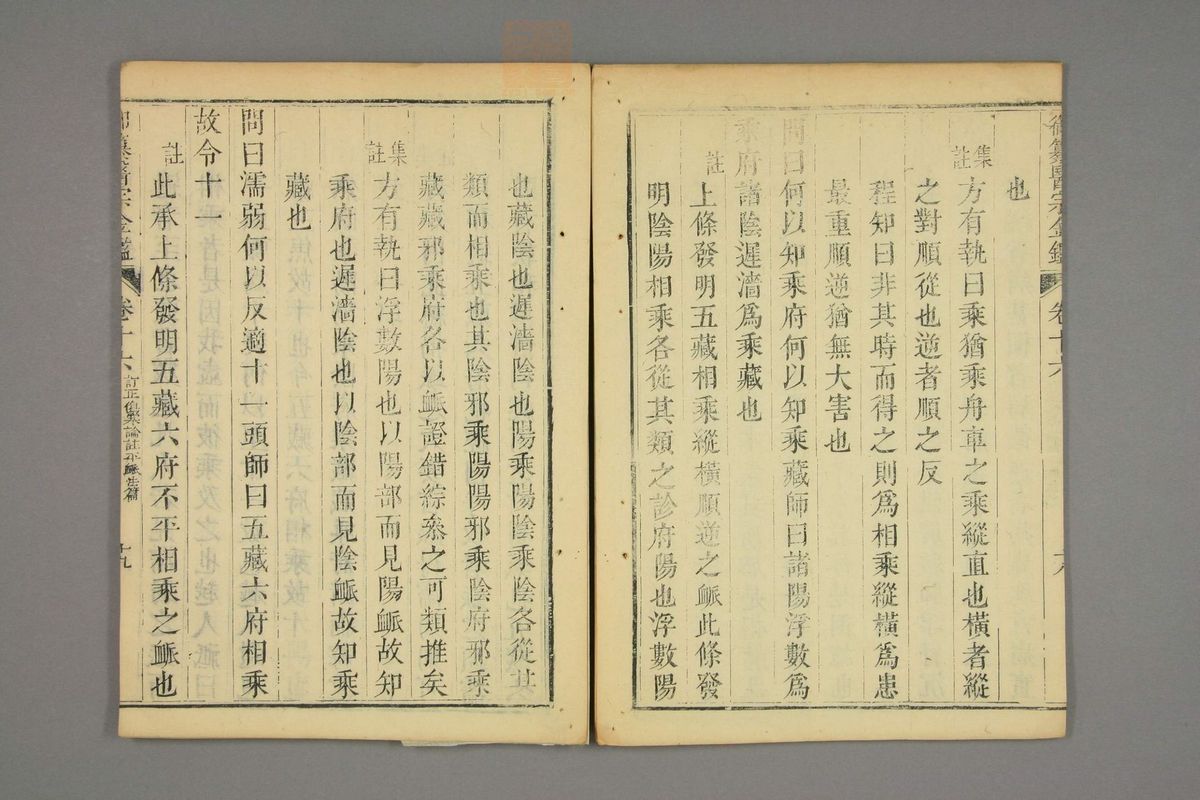 御纂醫宗金鑑 卷十六 十八
也
集註
方有執曰乘猶乘舟車之乘縱直也橫者縱
之對順從也逆者順之反
程知曰非其時而得之則爲相乘縱橫爲患
最重順逆猶無大害也
問曰何以知乘府何以知乘藏師曰諸陽浮數爲
乘府諸陰遲濇爲乘藏也
註
上條發明五藏相乘縱橫順逆之脈此條發
明陰陽相乘各從其類之診府陽也浮數陽
也藏陰也遲濇陰也陽乘陽陰乘陰各從其
類而相乘也其陰邪乘陽陽邪乘陰府邪乘
藏藏邪乘府各以脈證錯綜叅之可類推矣
集註
方有執曰浮數陽也以陽部而見陽脈故知
乘府也遲濇陰也以陰部而見陰脈故知乘
藏也
問曰濡弱何以反適十一頭師曰五藏六府相乘
故令十一
註
此承上條發明五藏六府不平相乘之脈也
御纂醫宗金鑑 卷十六 訂正傷寒論註平脈法篇 十九